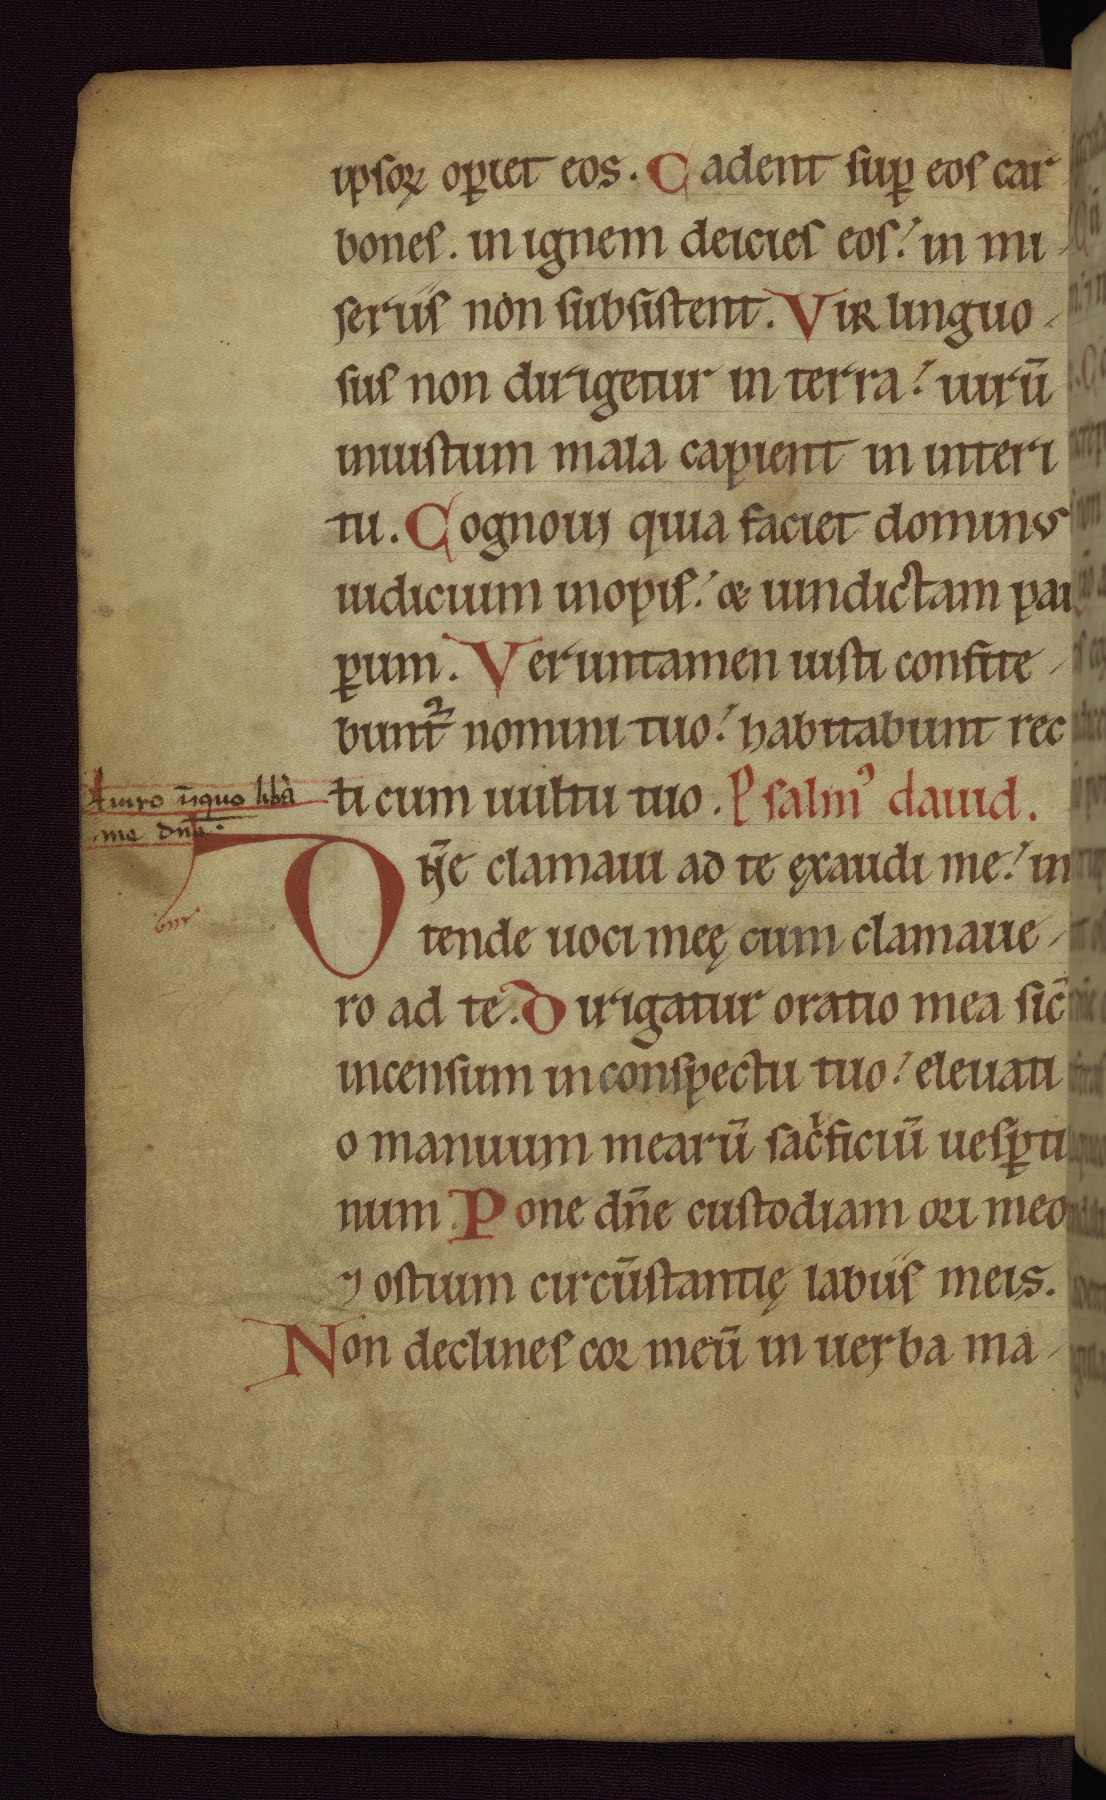 ipsoꝝ op̄iet eos. Cadent sup̄ eos car
bones. in ignem deicies eos! in mi-
seriis non subsistent. Vir linguo-
sus non dirigetur in terra! uirū
iniustum mala capient in interi
tu. Cognoui quia faciet dominus
iudicium inopis! & uindictam pau
p̄um. Veruntamen iusti confite-
bunt᷑ nomini tuo! habitabunt rec
A uiro iīquo lib̄a
ti cum uultu tuo. Psalmꝰ dauid.
me dn̄e.
Dn̄e clamaui ad te ęxaudi me! in
tende uoci meę cum clamaue-
ro ad te. Dirigatur oratio mea sic̄
incensum in conspectu tuo! eleuati
o manuum mearū sac̍ficiū uesp̄ti
num. Pone dn̄e custodiam ori meo
⁊ ostium circūstantię labiis meis.
Non declines cor meū in uerba ma-